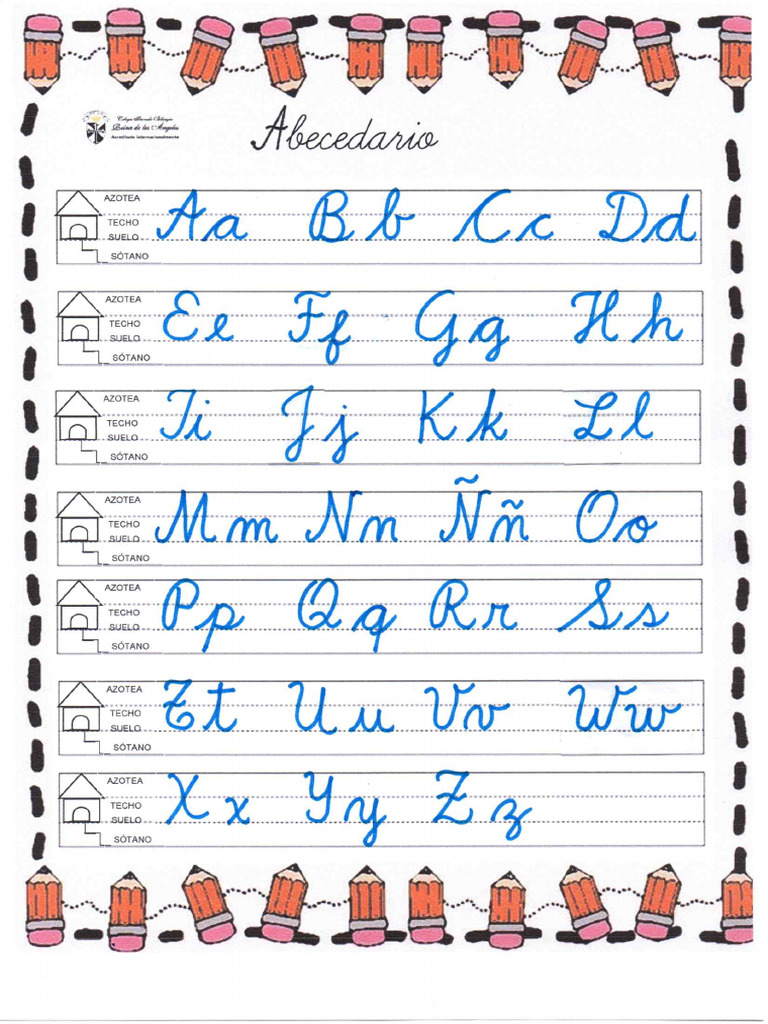 Colegio Privado Bilingüe
Reina de los Angeles
Acreditado internacionalmente
Abecedario
AZOTEA
TECHO
SUELO
SÓTANO
Aa Bb Cc Dd
AZOTEA
TECHO
SUELO
SÓTANO
Ee Ff Gg Hh
AZOTEA
TECHO
SUELO
SÓTANO
Ii Jj Kk Ll
AZOTEA
TECHO
SUELO
SÓTANO
Mm Nn Ññ Oo
AZOTEA
TECHO
SUELO
SÓTANO
Pp Qq Rr Ss
AZOTEA
TECHO
SUELO
SÓTANO
Tt Uu Vv Ww
AZOTEA
TECHO
SUELO
SÓTANO
Xx Yy Zz